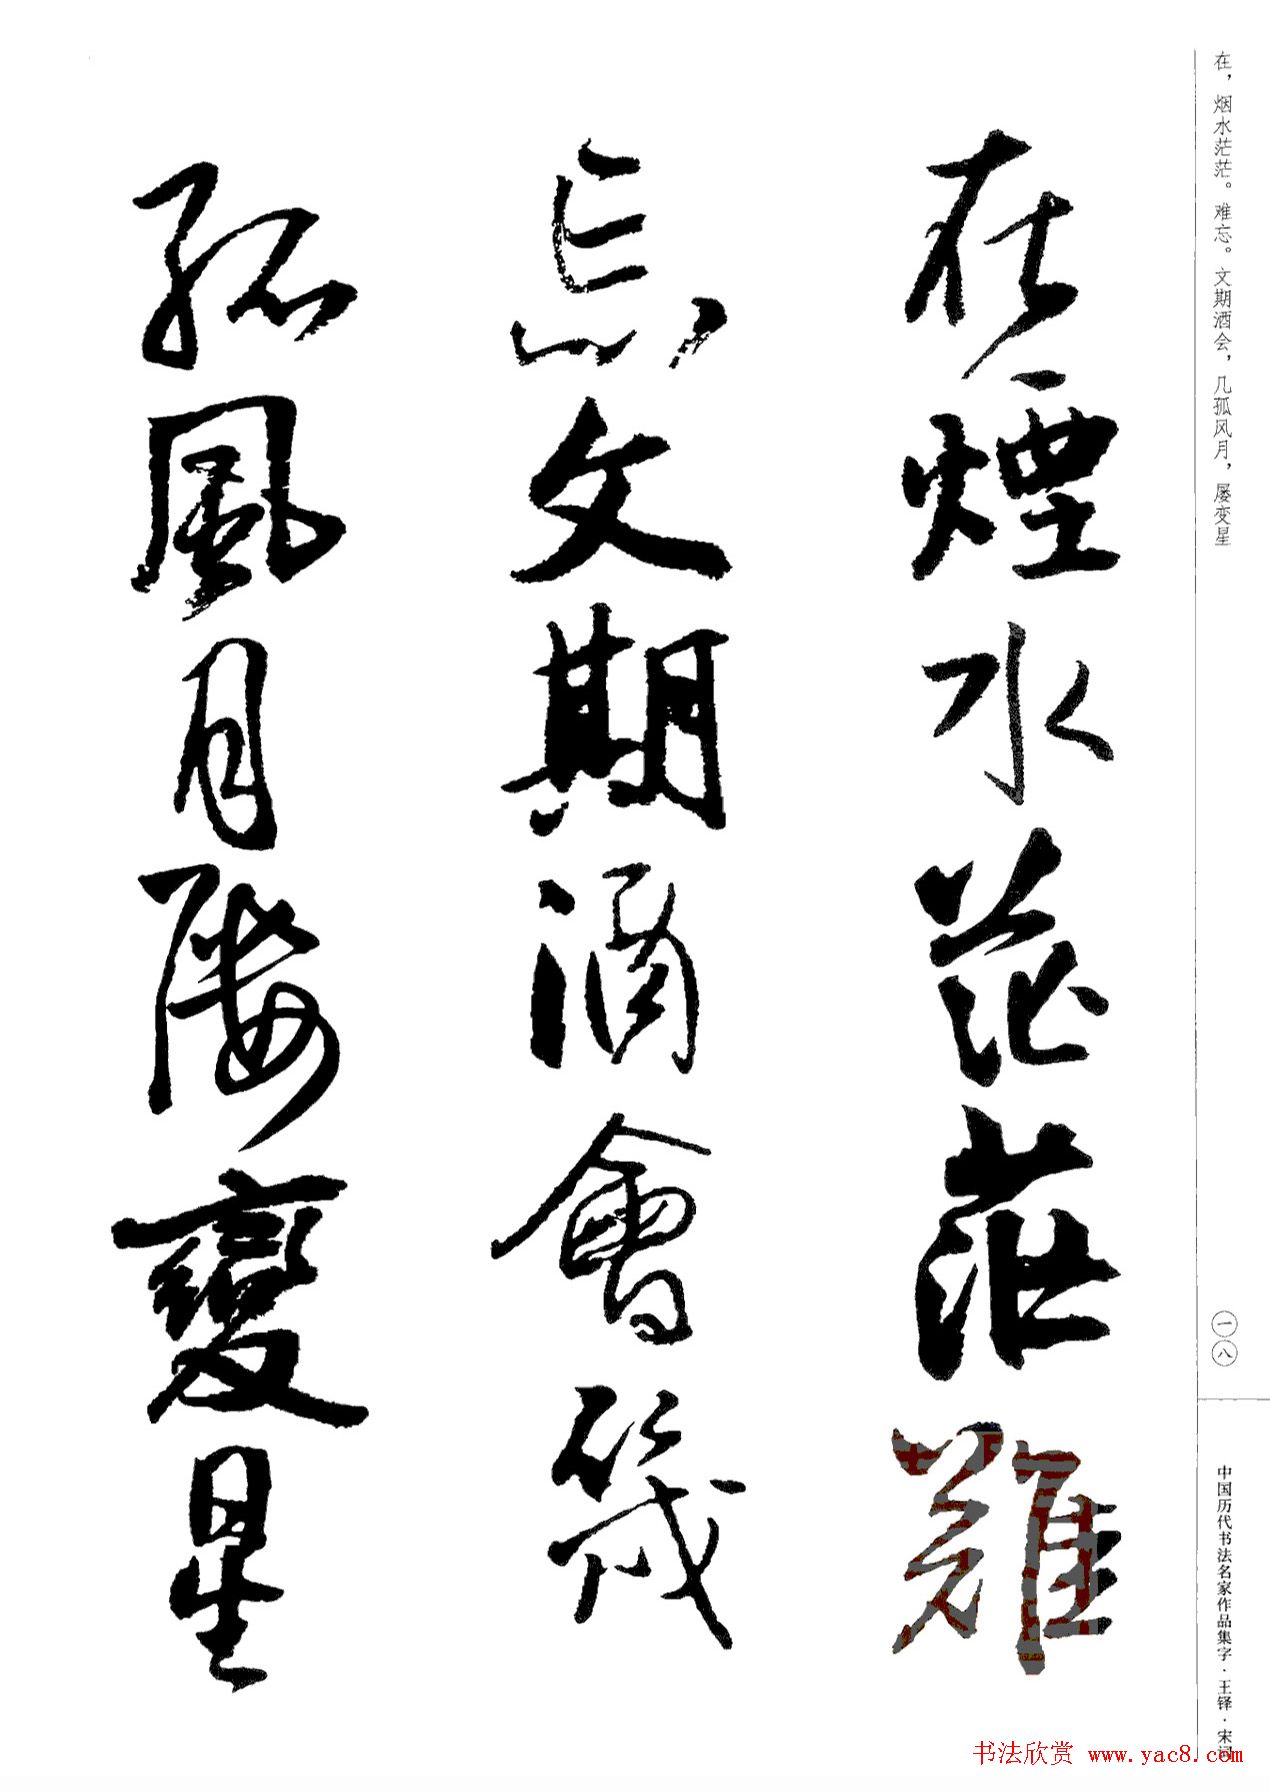 在，烟水茫茫。难忘。文期酒会，几孤风月，屡变星
一八
中国历代书法名家作品集字·王铎·宋词
在煙水茫茫難
忘文期酒會幾
孤風月屢變星
书法欣赏 www.yac8.com